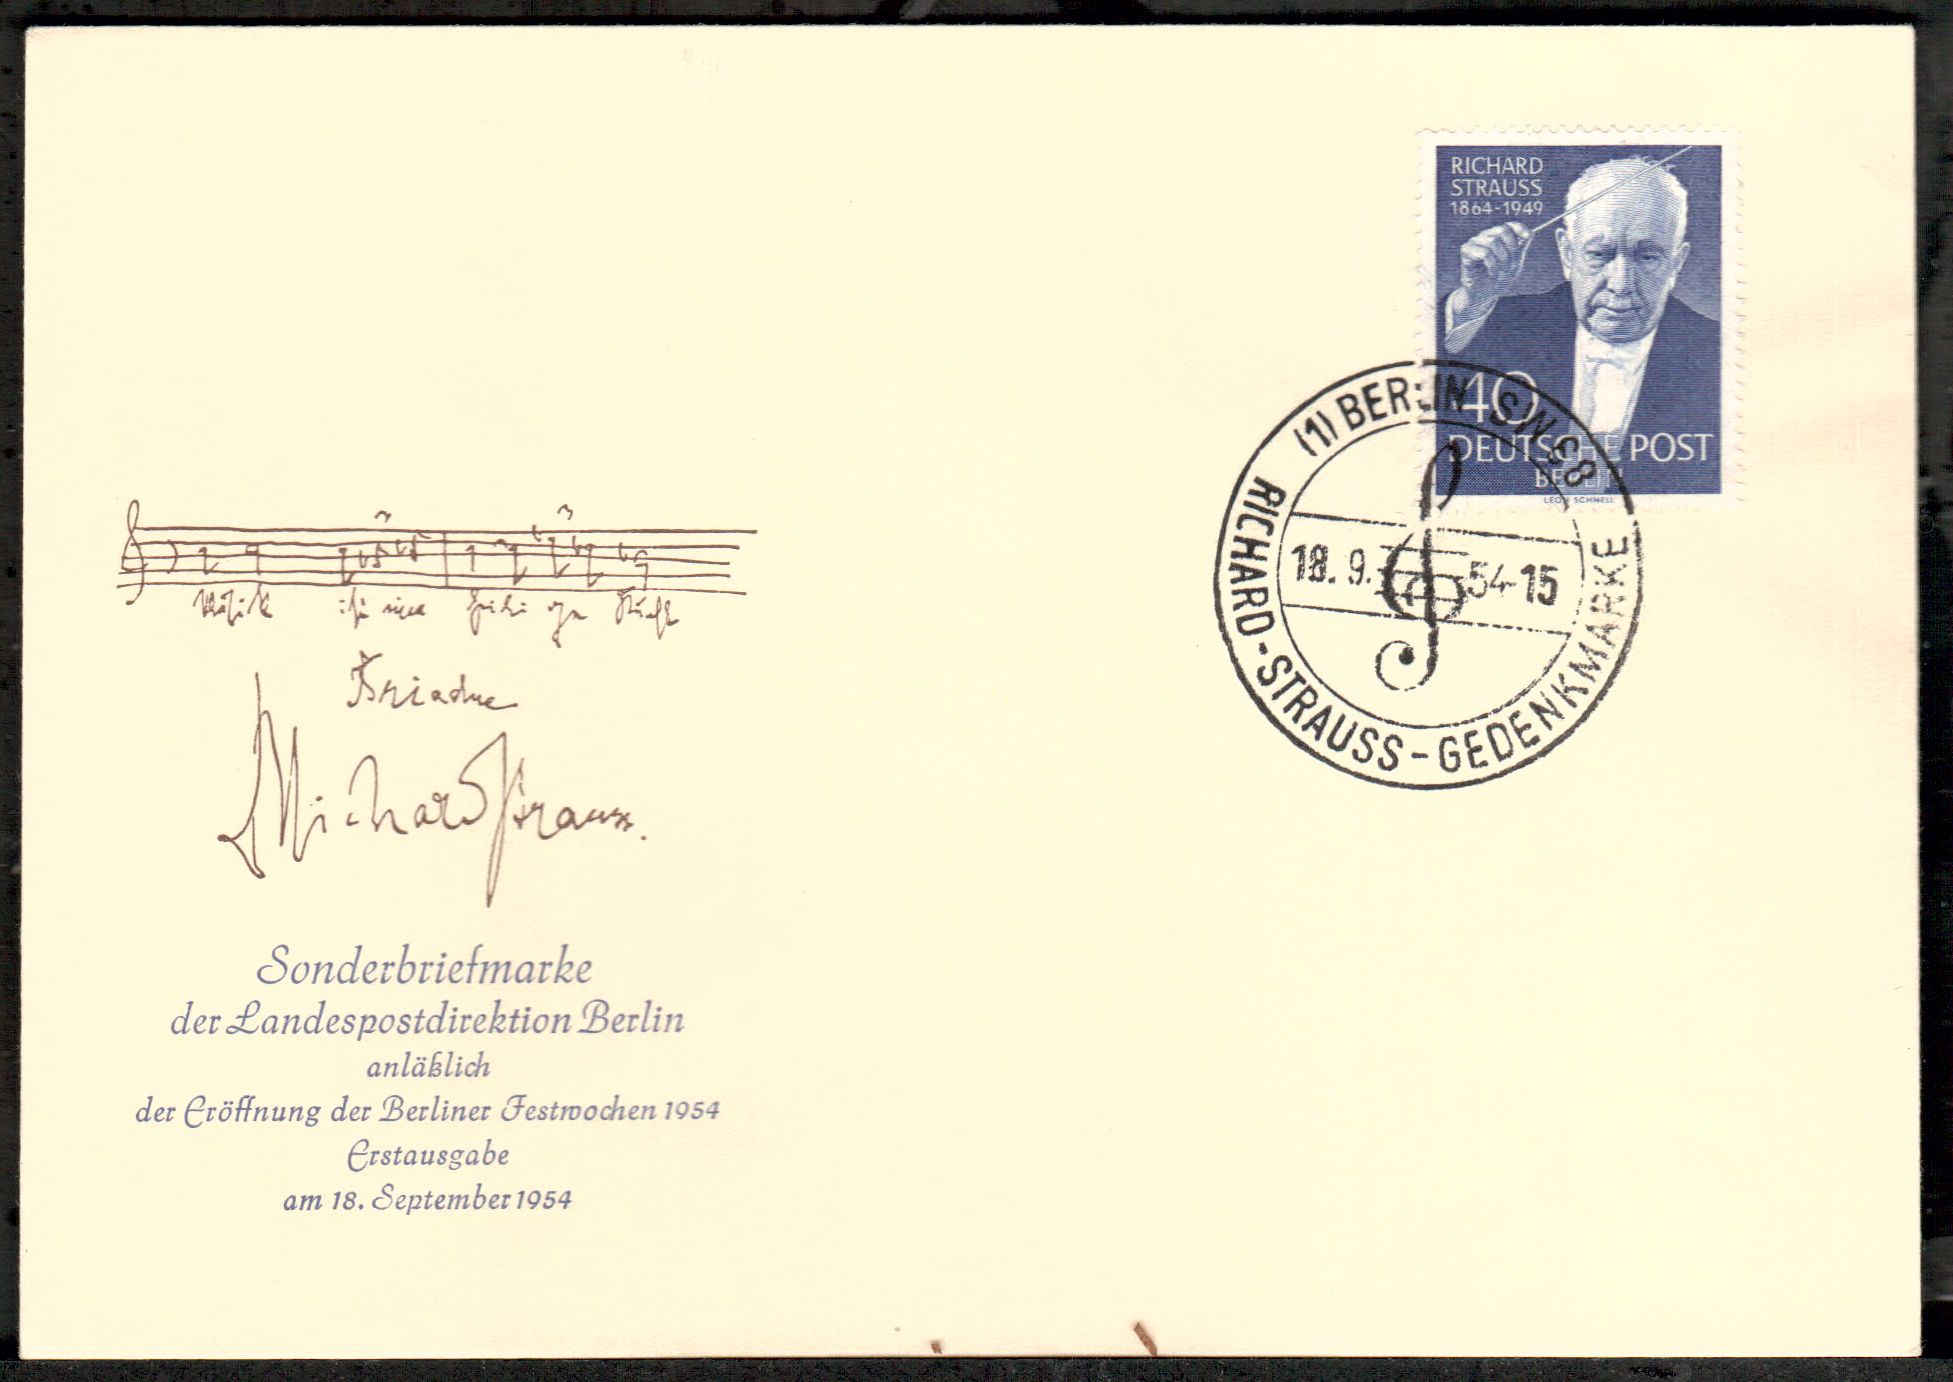 RICHARD
STRAUSS
1864-1949
40
DEUTSCHE POST
BERLIN
LEON SCHNELL
(1) BERLIN SW 68
18.9.54-15
RICHARD-STRAUSS-GEDENKMARKE
Musik ist eine heilige Kunst
Ariadne
Richard Strauss.
Sonderbriefmarke
der Landespostdirektion Berlin
anläßlich
der Eröffnung der Berliner Festwochen 1954
Erstausgabe
am 18. September 1954